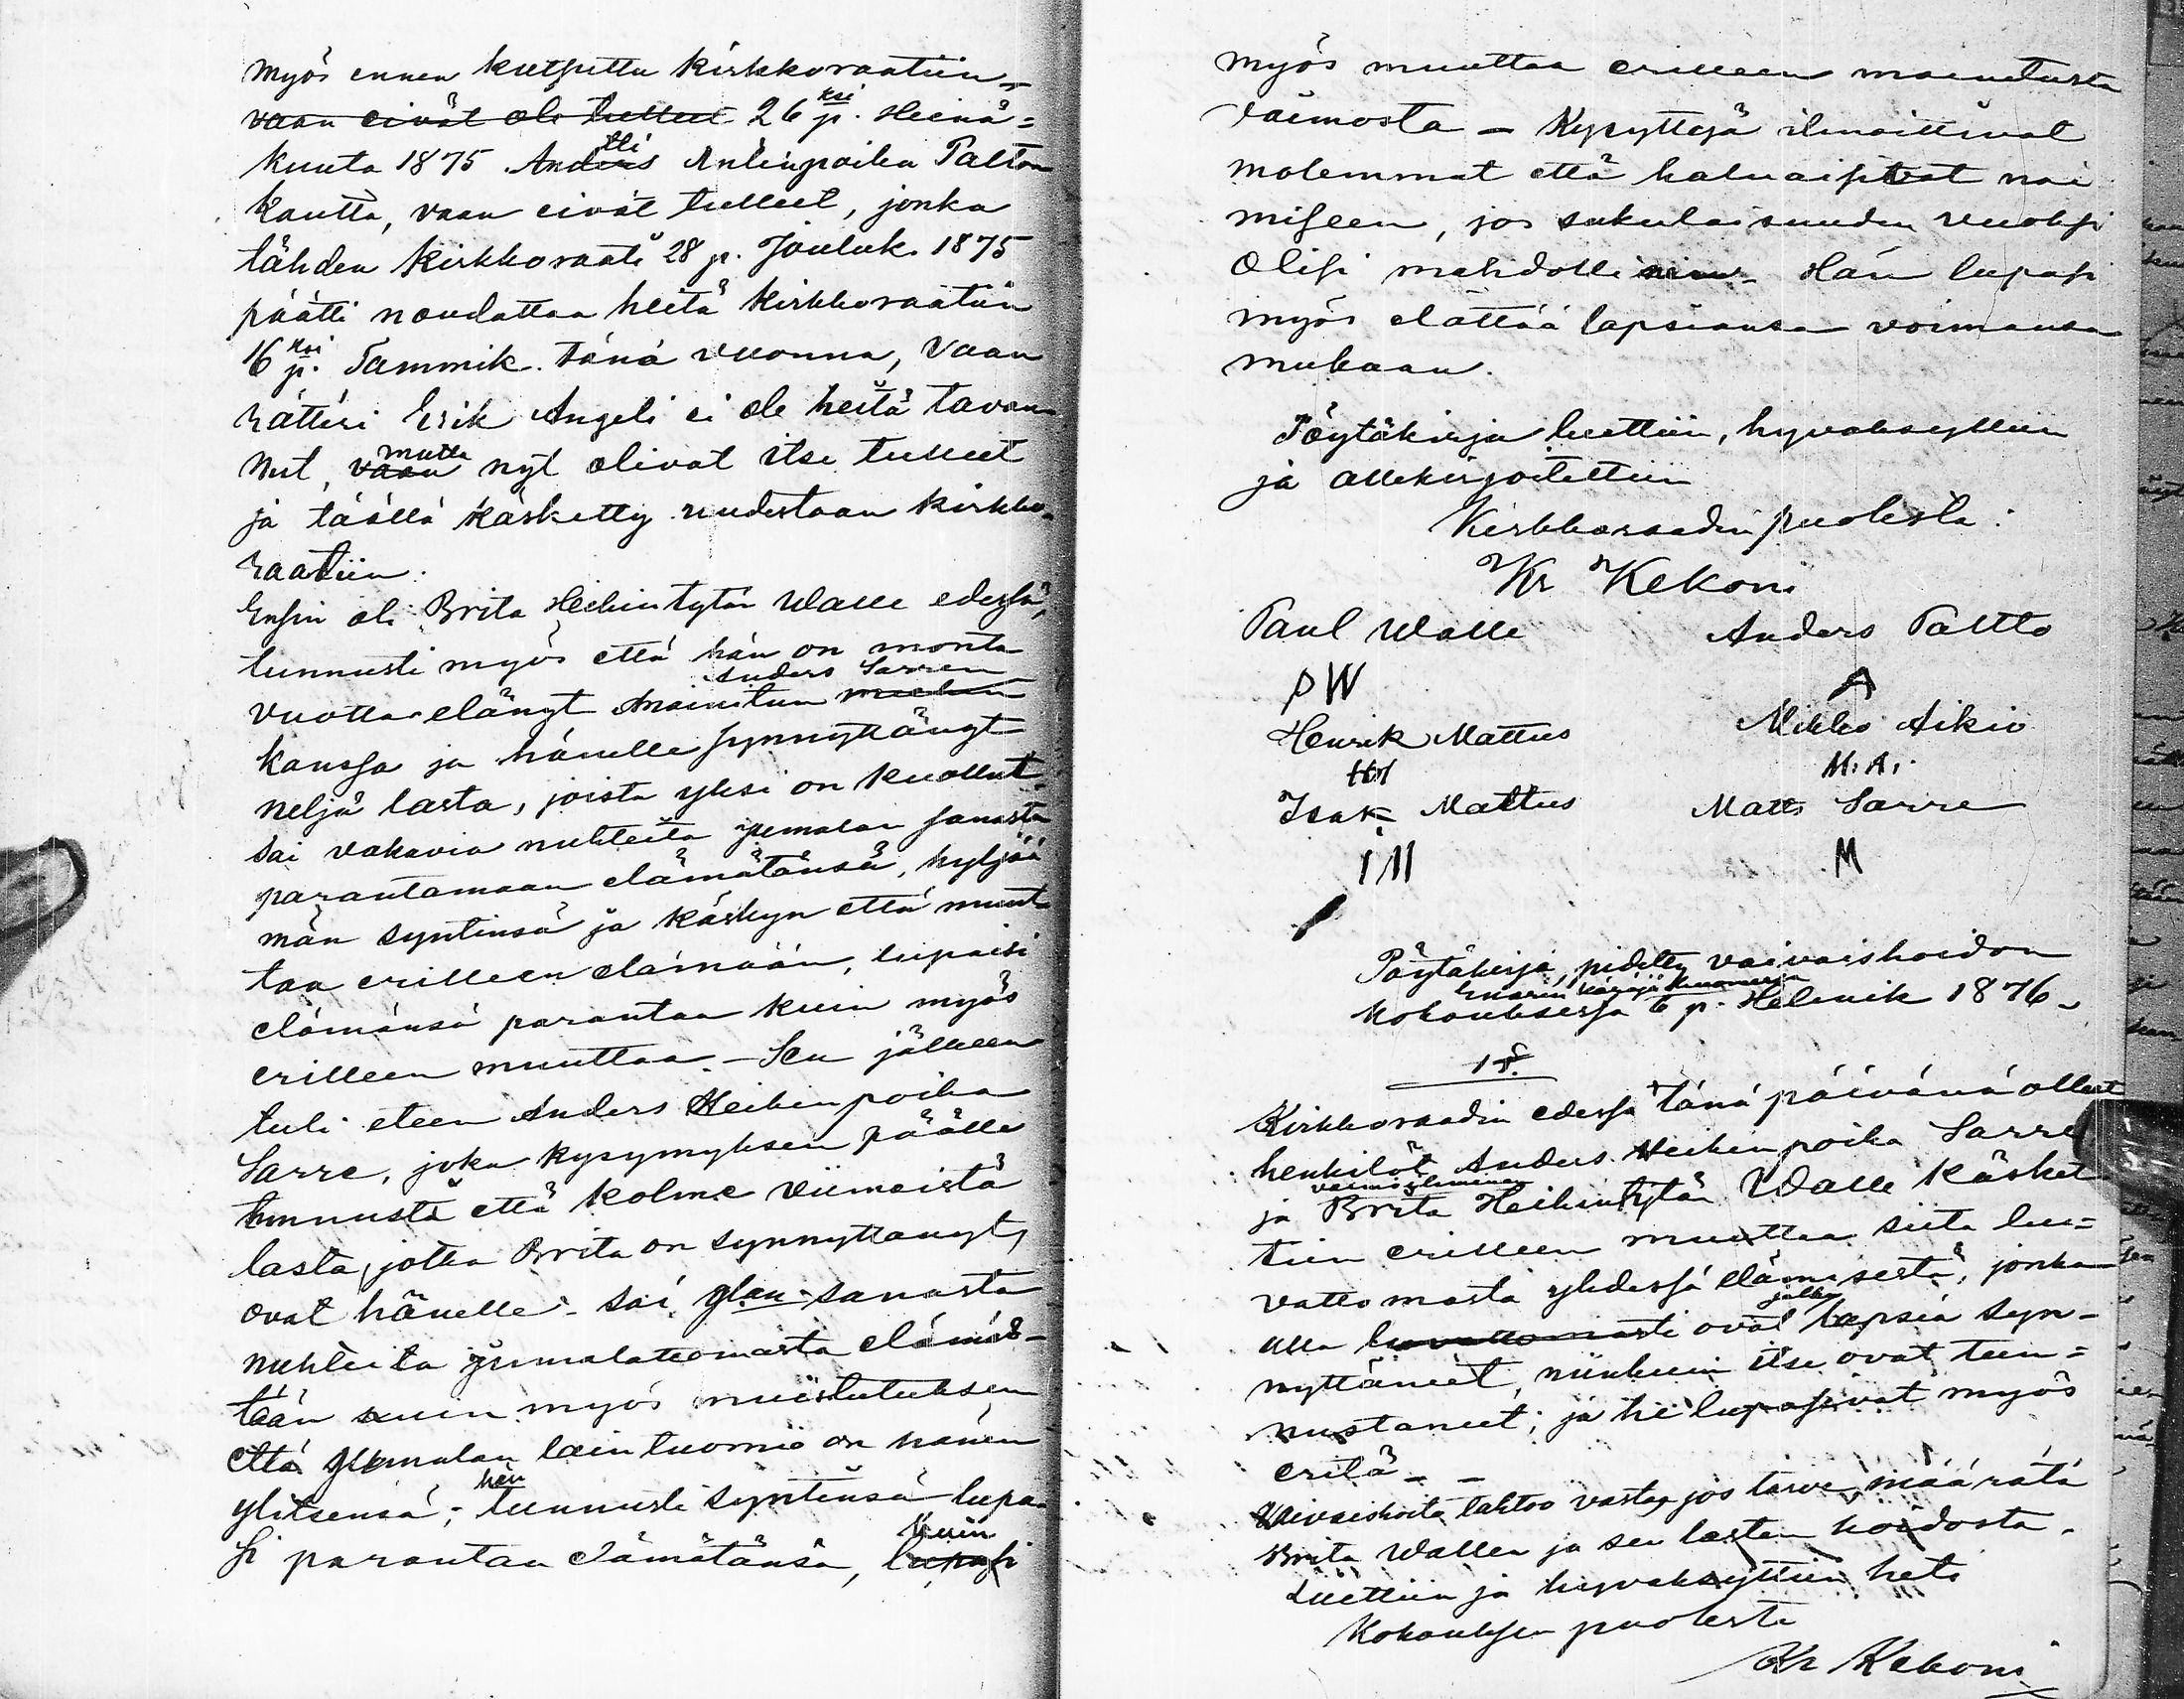 myös ennen kutsuttu kirkkoraatiin -
vaan eivät ole tulleet 26 ksi p. Heinä=
kuuta 1875 Anders Antinpoika Palton
kautta, vaan eivät tulleet, jonka
tähden kirkkoraati 28 p. Jouluk. 1875
päätti noudattaa heitä kirkkoraatiin
16 ksi p. Tammik. tänä vuonna, vaan
rätteri Erik Angeli ei ole heitä tavan
nut, vaan mutta nyt olivat itse tulleet
ja täällä käsketty uudestaan kirkko-
raatiin.
Ensin oli Brita Heikintytär Walle edessä,
tunnusti myös että hän on monta
Anders Sarren
vuotta elänyt mainitun miehen
kanssa ja hänelle synnyttänyt
neljä lasta, joista yksi on kuollut
sai vakavia nuhteita jumalan sanasta
parantamaan elämätänsä, hyljää
män syntinsä ja käskyn että muut
taa erilleen elämään, lupaisi
elämänsä parantaa kuin myös
erilleen muuttaa. - Sen jälkeen
tuli eteen Anders Heikinpoika
Sarre, joka kysymyksen päälle
tunnusti että kolme viimeistä
lasta, jotka Brita on synnyttänyt,
ovat hänelle - sai Jlan sanasta
nuhteita jumalattomasta elämäs-
tään kuin myös muistutuksen
että Jumalan lain tuomio on hänen
ylitsensä; hän tunnusti syntinsä lupa
si parantaa elämätänsä, kuin lupasi
myös muuttaa erilleen mainitusta
vaimosta - Kysyttyjä ilmoittivat
molemmat että haluaisivat nai
miseen, jos sukulaisuuden vuoksi
olisi mahdollinen - Hän lupasi
myös elättää lapsiansa voimansa
mukaan.
Pöytäkirja luettiin, hyväksyttiin
ja allekirjoitettiin
Kirkkoraadin puolesta:
Kr Kekoni
Paul Walle Anders Paltto
PW A
Henrik Mattus Mikko Aikio
HM M.A.
Isak Mattus Matts Sarre
IM M
Pöytäkirja, pidetty vaivaishoidon
Enarin käräjä huoneessa
kokouksessa 6 p. Helmik 1876 -
1 §.
Kirkkoraadin edessä tänä päivänä olleet
henkilöt Anders Heikinpoika Sarre
ja Brita Heikintytär Walle käsket
tiin erilleen muuttaa siitä luu=
vattomasta yhdessä elämisestä, jonka
alla luvattomasti ovat lapsia syn-
nyttäneet, niinkuin itse ovat tun=
nustaneet; ja he lupasivat myös
eritä - -
Vaivaishoito tahtoo vasta, jos tarve, määrätä
Brita Wallen ja sen lasten hoidosta.
Luettiin ja hyväksyttiin heti
Kokouksen puolesta
Kr Kekoni